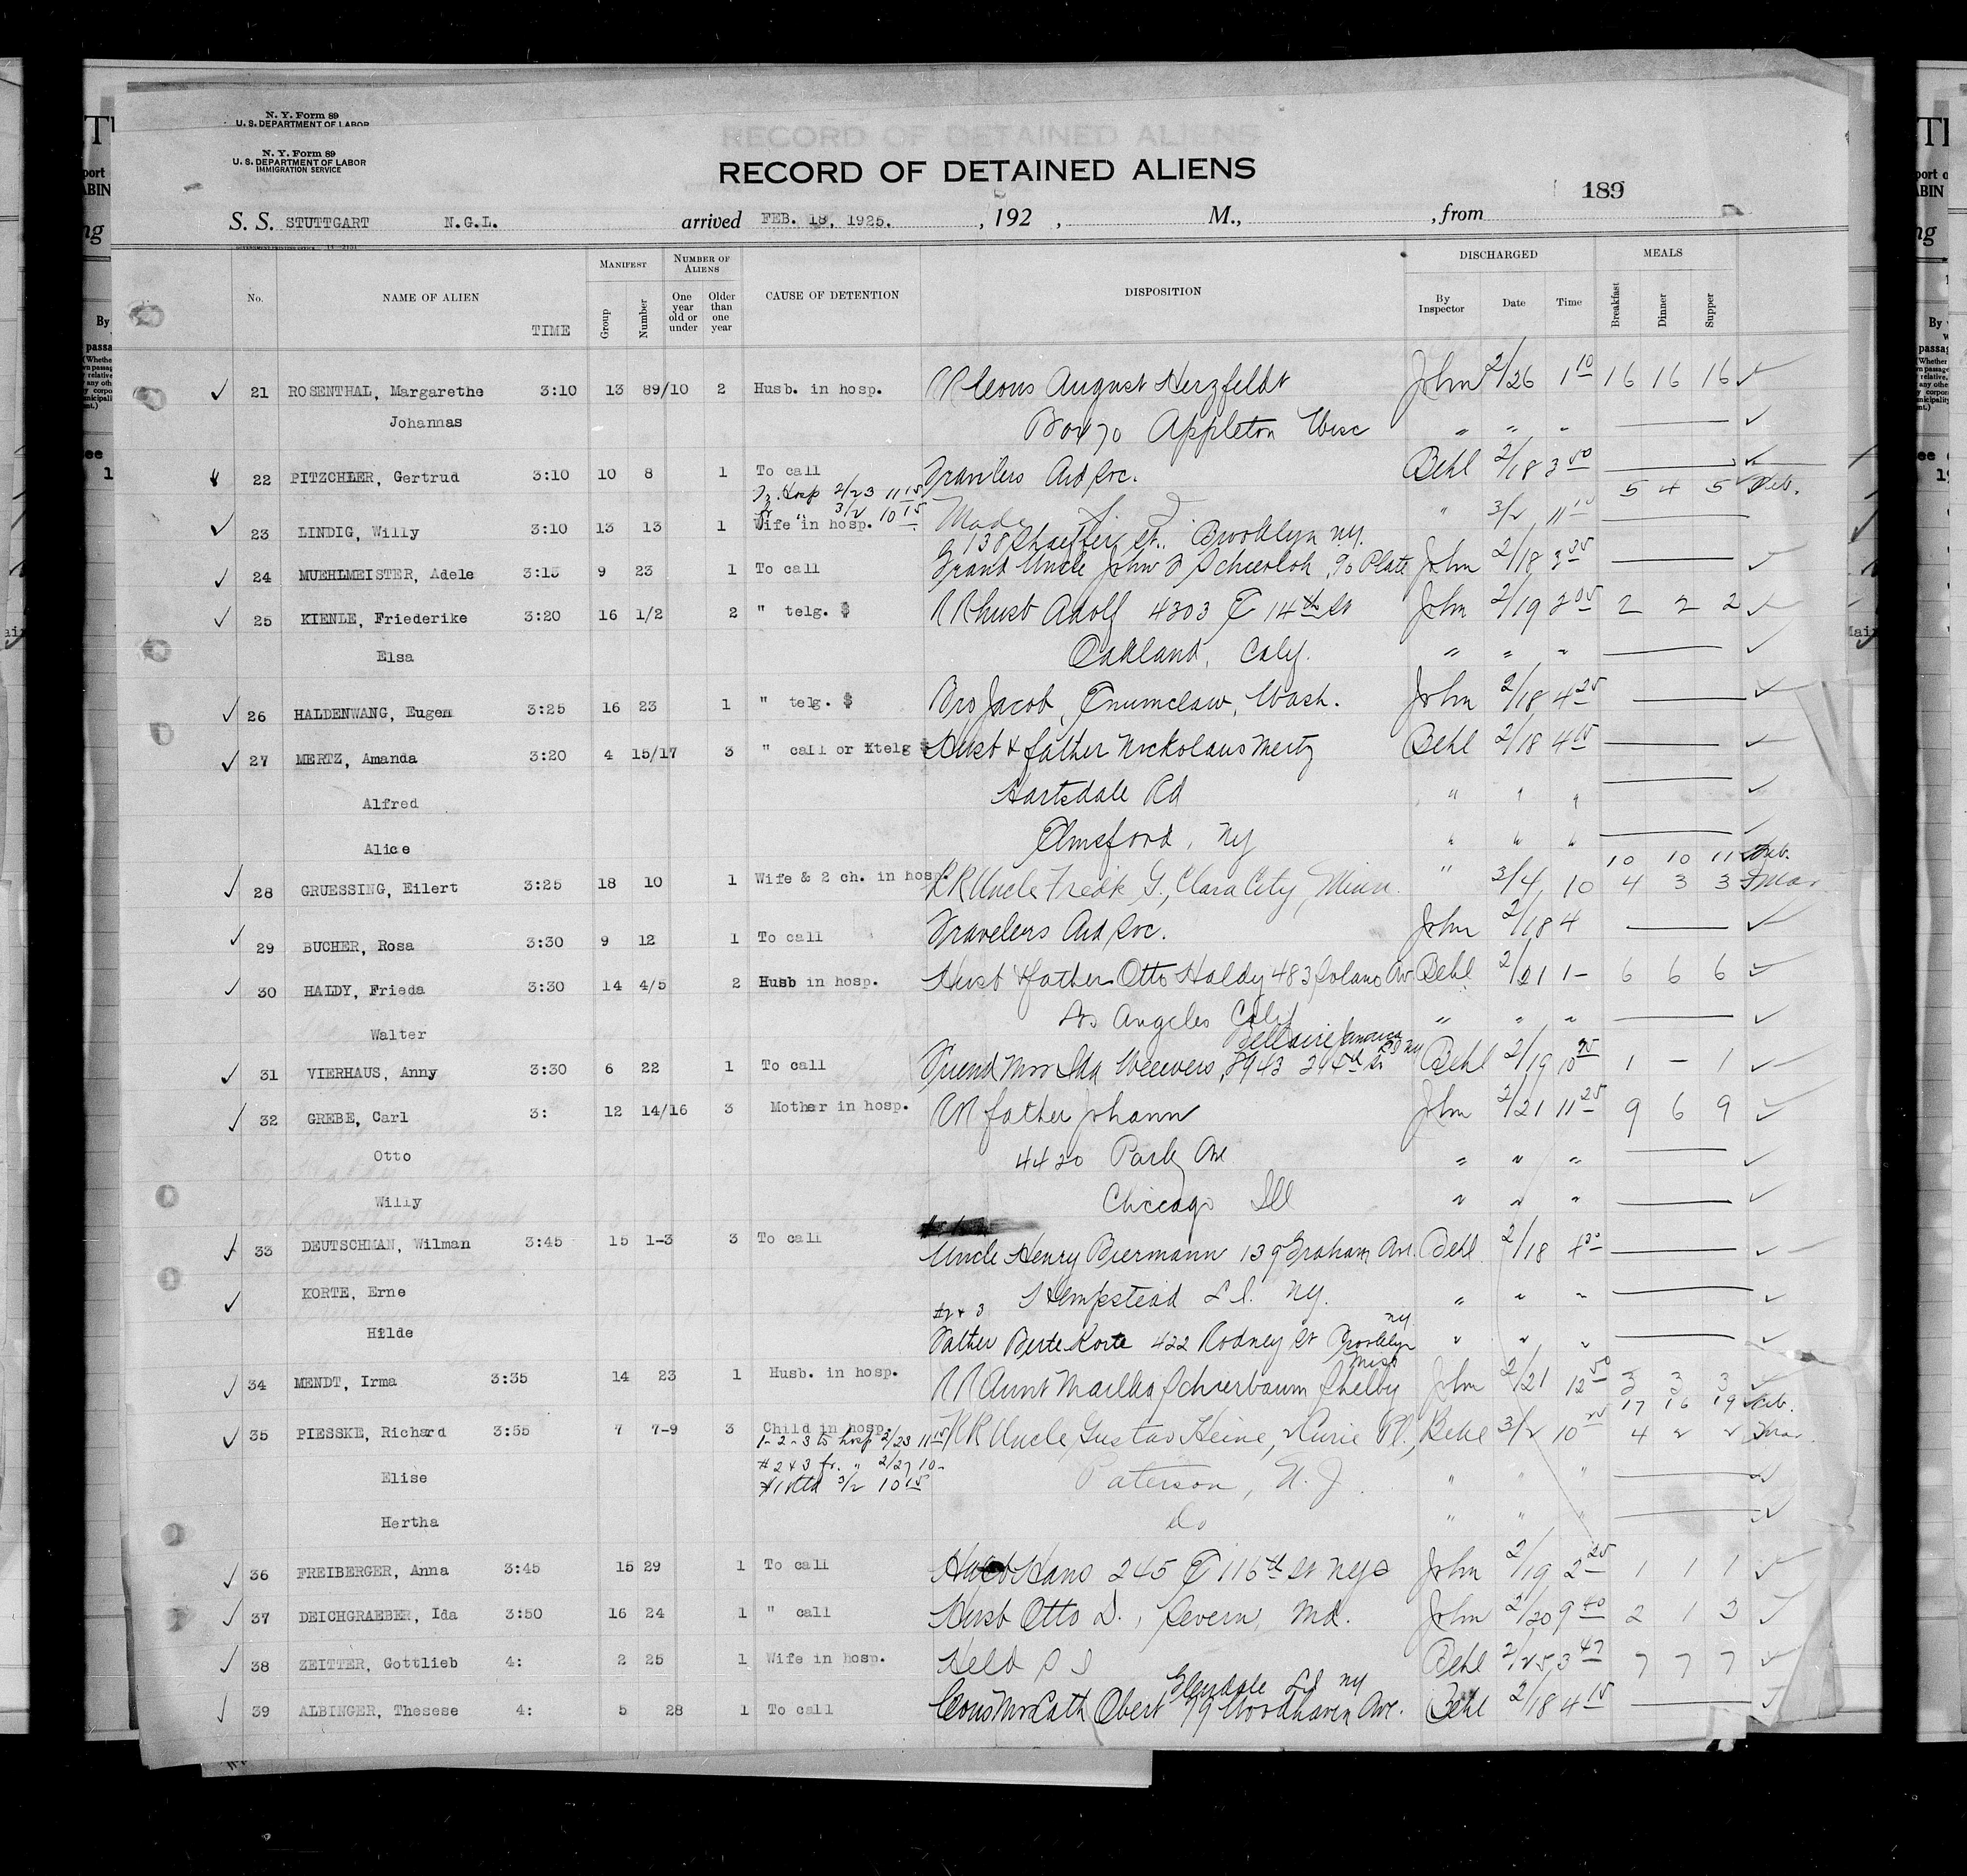 N. Y. Form 89
U. S. DEPARTMENT OF LABOR
N. Y. Form 89
U. S. DEPARTMENT OF LABOR
IMMIGRATION SERVICE
RECORD OF DETAINED ALIENS
RECORD OF DETAINED ALIENS
189
S. S. STUTTGART N.G.L. arrived FEB. 18, 1925. , 192 , M., , from
MANIFEST NUMBER OF ALIENS DISCHARGED MEALS
No. NAME OF ALIEN TIME Group Number One year old or under Older than one year CAUSE OF DETENTION DISPOSITION By Inspector Date Time Breakfast Dinner Supper
21 ROSENTHAL, Margarethe 3:10 13 89/10 2 Husb. in hosp. RR Cous August Herzfeldt John 2/26 1 10 16 16 16
Johannas Box 70 Appleton Wisc " " "
22 PITZCHLER, Gertrud 3:10 10 8 1 To call Travelers Aid Soc. Behl 2/18 3 50
To Hosp 2/23 11 15 5 4 5 Feb.
Fr " 3/2 10 15
23 LINDIG, Willy 3:10 13 13 1 Wife in hosp. " 3/2 11 10
138 Shaeffer St., Brooklyn NY.
24 MUEHLMEISTER, Adele 3:15 9 23 1 To call Grand Uncle John Scheerloh, 90 Platt John 2/18 3 35
25 KIENLE, Friederike 3:20 16 1/2 2 " telg. $ RR husb Adolf 4303 E 14th St John 2/19 2 05 2 2 2
Elsa Oakland, Caly. " " "
26 HALDENWANG, Eugen 3:25 16 23 1 " telg. $ Bro Jacob, Enumclaw, Wash. John 2/18 4 25
27 MERTZ, Amanda 3:20 4 15/17 3 " call or telg $ Husb & father Nickolaus Mertz Behl 2/18 4 15
Alfred Hartsdale Rd " " "
Alice Elmsford, NY " " "
10 10 11 Feb.
28 GRUESSING, Eilert 3:25 18 10 1 Wife & 2 ch. in hosp. RR Uncle Fredk G., Clara City, Minn. " 3/4 10 4 3 3 Mar
29 BUCHER, Rosa 3:30 9 12 1 To call Travelers Aid Soc. John 2/18 4
30 HALDY, Frieda 3:30 14 4/5 2 Husb in hosp. Husb & father Otto Haldy 483 Solano Av Behl 2/21 1- 6 6 6
Walter Los Angeles Calif " " "
Bellaire Jamaica
31 VIERHAUS, Anny 3:30 6 22 1 To call Friend Mrs Ida Weewers, 8943 St Behl 2/19 10 1 - 1
32 GREBE, Carl 3: 12 14/16 3 Mother in hosp. RR father Johann John 2/21 11 25 9 6 9
Otto 4420 Park Ave " " "
Willy Chicago Ill " " "
33 DEUTSCHMAN, Wilman 3:45 15 1-3 3 To call Uncle Henry Biermann 139 Graham Ave. Behl 2/18 4 30
KORTE, Erne Hempstead L.I. NY. " " "
#2 & 3
Hilde Father Berte Korte 422 Rodney St Brooklyn NY " " "
34 MENDT, Irma 3:35 14 23 1 Husb. in hosp. RR Aunt Martha Schierbaum Shelby John 2/21 12 50 3 3 3
17 16 19 Feb.
35 PIESSKE, Richard 3:55 7 7-9 3 Child in hosp. RR Uncle Gustav Heine, 2 Curie Pl., Behl 3/2 10 4 2 2 Mar
1-2-3 to hosp 2/23 11 15
#2 & 3 fr. " 2/27 10-
Elise Paterson, N.J. " " "
#1 Retd 3/2 10 15
Hertha do " " "
36 FREIBERGER, Anna 3:45 15 29 1 To call Hans 245 E 116th St NYC John 2/19 2 25 1 1 1
37 DEICHGRAEBER, Ida 3:50 16 24 1 " call Husb Otto D., Severn, Md. John 2/20 9 40 2 1 3
38 ZEITTER, Gottlieb 4: 2 25 1 Wife in hosp. Held S I Behl 2/25 3 47 7 7 7
Glendale L.I. NY
39 ALBINGER, Thesese 4: 5 28 1 To call Cous Mrs Cath Obert 79 Woodhaven Ave. Behl 2/18 4 15